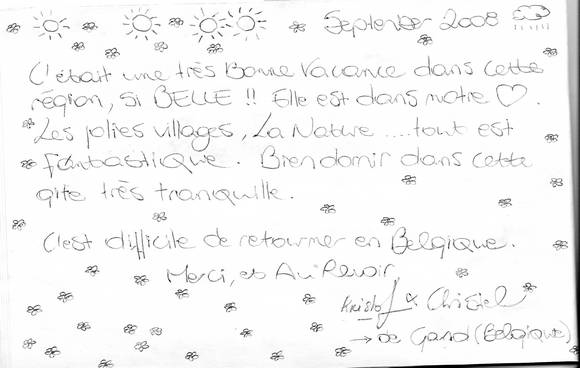 September 2008
C'était une très Bonne Vacance dans cette
région, si BELLE !! Elle est dans notre ♡.
Les jolies villages, La Nature ....tout est
fantastique. Bien dormir dans cette
gite très tranquille.
C'est difficile de retourner en Belgique.
Merci, et Au Revoir
Kristof & Christel
→ de Gand (Belgique)